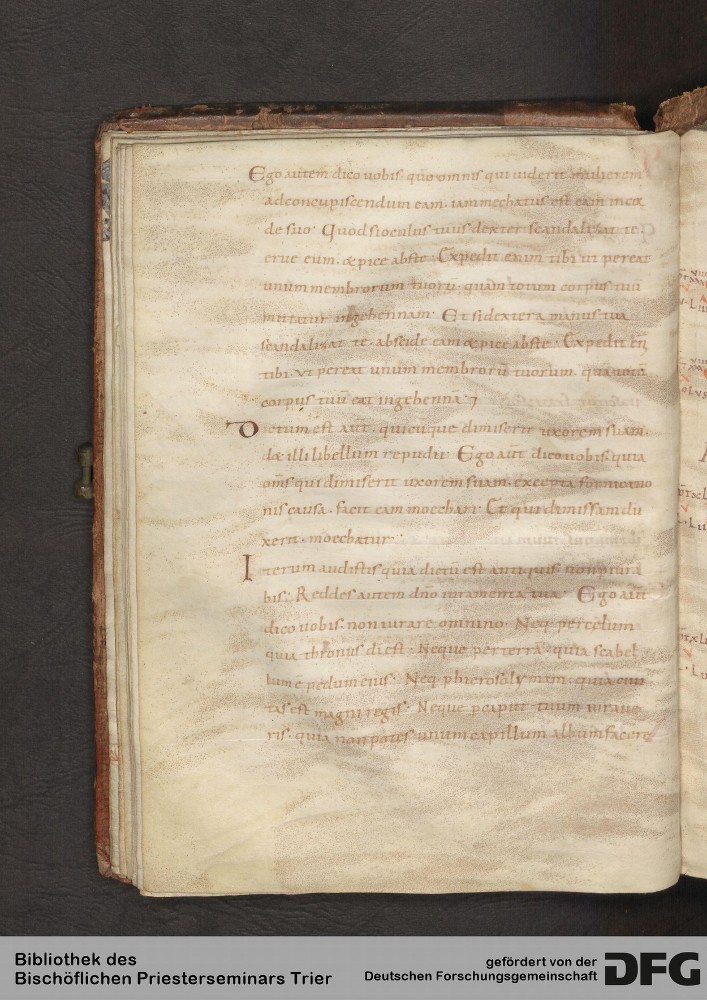 Ego autem dico uobis. quō omnis qui uiderit mulierem
ad concupiscendum eam. iam mechatus est eam in cor
de suo. Quod si oculus tuus dexter scandalizat te.
erue eum. & piice abs te. Expedit enim tibi ut pereat
unum membrorum tuorū. quam totum corpus tuū
mittatur in gehennam. Et si dextera manus tua
scandalizat te. abscide eam & piice abs te. Expedit enī
tibi. ut pereat unum membrorū tuorum. quā totū
corpus tuū eat in gehennā.
Dictum est aūt. quicūque dimiserit uxorem suam.
det illi libellum repudii. Ego aūt dico uobis. quia
oms̄ qui dimiserit uxorem suam. excepta fornicatio
nis causa. facit eam moechari. Et qui dimissam du
xerit. moechatur.
Iterum audistis quia dictū est antiquis. non piura
bis. Reddes autem dn̄o iuramenta tua. Ego aūt
dico uobis. non iurare omnino. Neq. per celum
quia thronus dī est. Neque per terrā. quia scabel
lum ē pedum eius. Neq. p hierosolymam. quia ciui
tas est magni regis. Neque p caput tuum iuraue
ris. quia non potes unum capillum album facere
Bibliothek des
Bischöflichen Priesterseminars Trier
gefördert von der
Deutschen Forschungsgemeinschaft
DFG